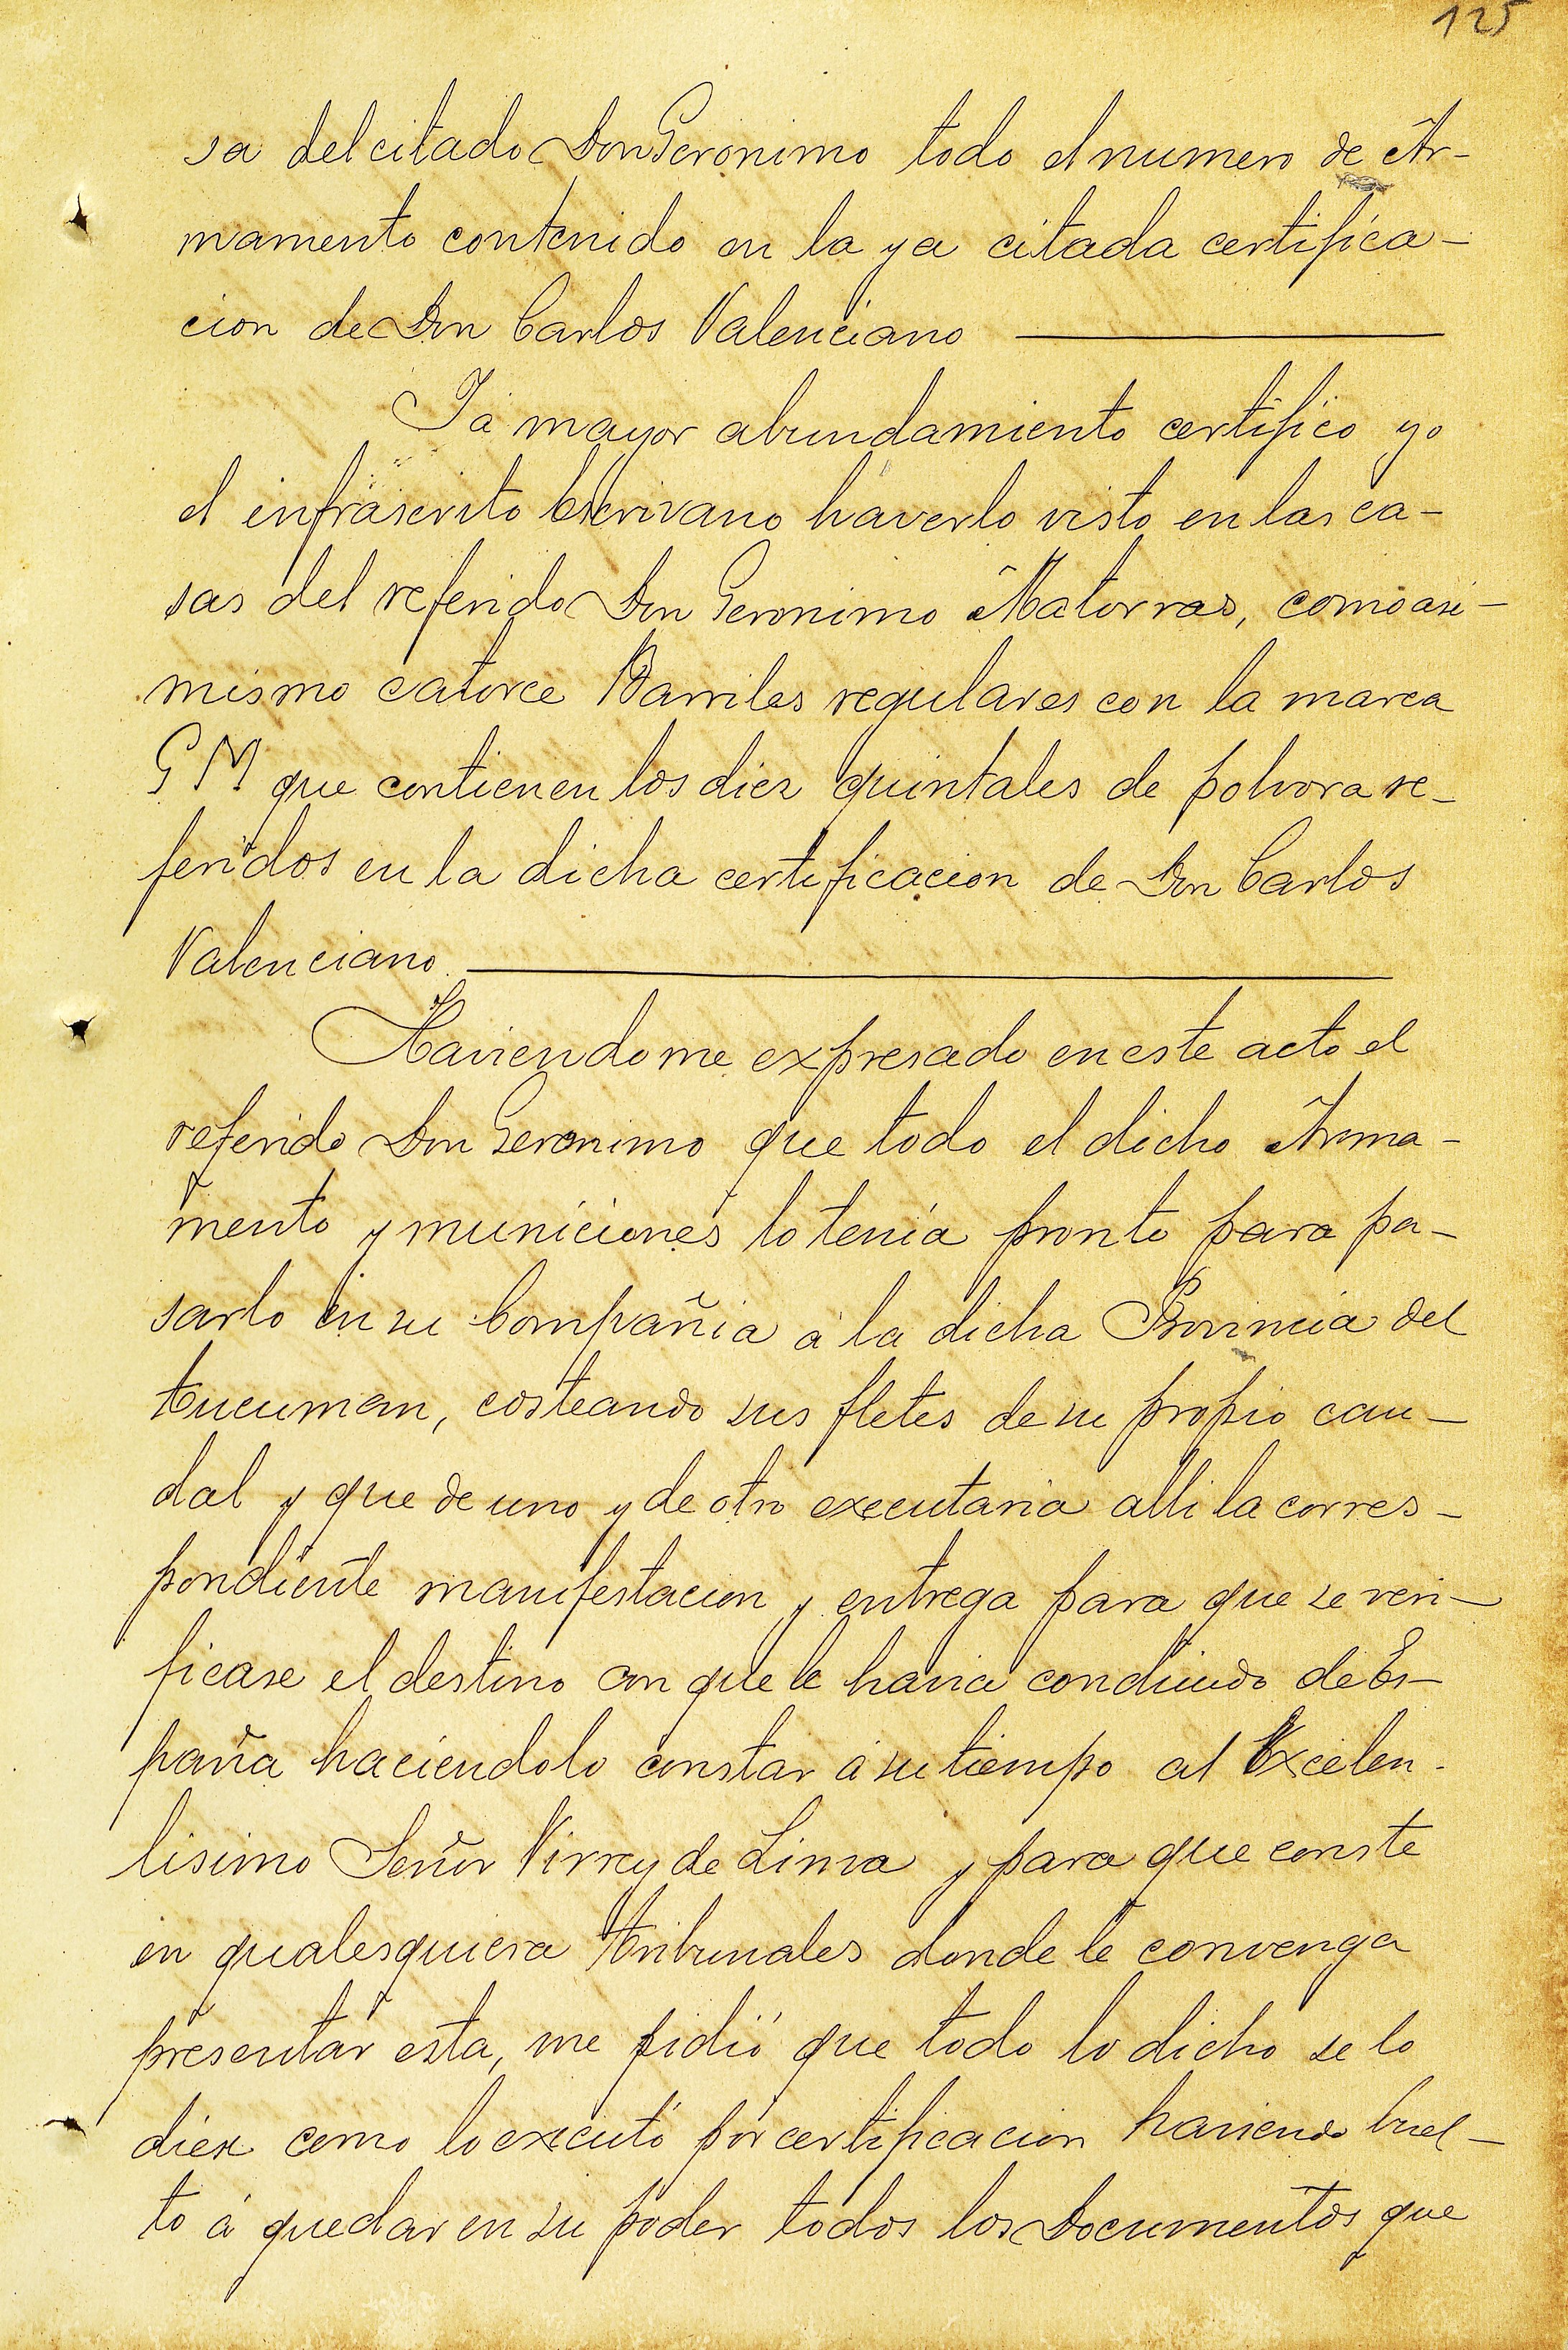 125
sa del citado Don Geronimo todo el numero de Ar-
mamento contenido en la ya citada certifica-
cion de Don Carlos Valenciano
Ja mayor abundamiento certifico yo
el infrascrito Escrivano haverlo visto en las ca-
sas del referido Don Geronimo Matorras, como asi-
mismo catorce Barriles regulares con la marca
G M que contienen los diez quintales de polvora re-
feridos en la dicha certificacion de Don Carlos
Valenciano
Haviendome expresado en este acto el
referido Don Geronimo que todo el dicho Arma-
mento y municiones lo tenia pronto para pa-
sarlo en su Compañia á la dicha Provincia del
tucuman, costeando sus fletes de su propio cau-
dal y que de uno y de otro executaria alli la corres-
pondiente manifestacion y entrega para que se veri-
ficase el destino con que le havia conducido de Es-
paña haciendolo constar á su tiempo al Excelen-
lisimo Señor Virrey de Lima y para que conste
en qualesquiera tribunales donde le convenga
presentar esta, me pidió que todo lo dicho se lo
diese como lo executó por certificacion haviendo buel-
to á quedar en su poder todos los Documentos que